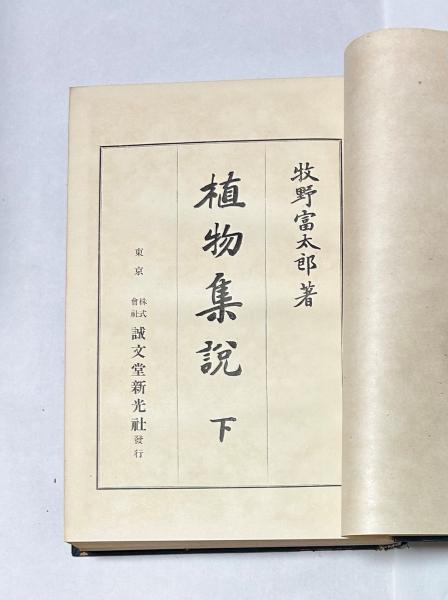 牧野富太郎著
植物集説 下
東京 株式會社 誠文堂新光社發行